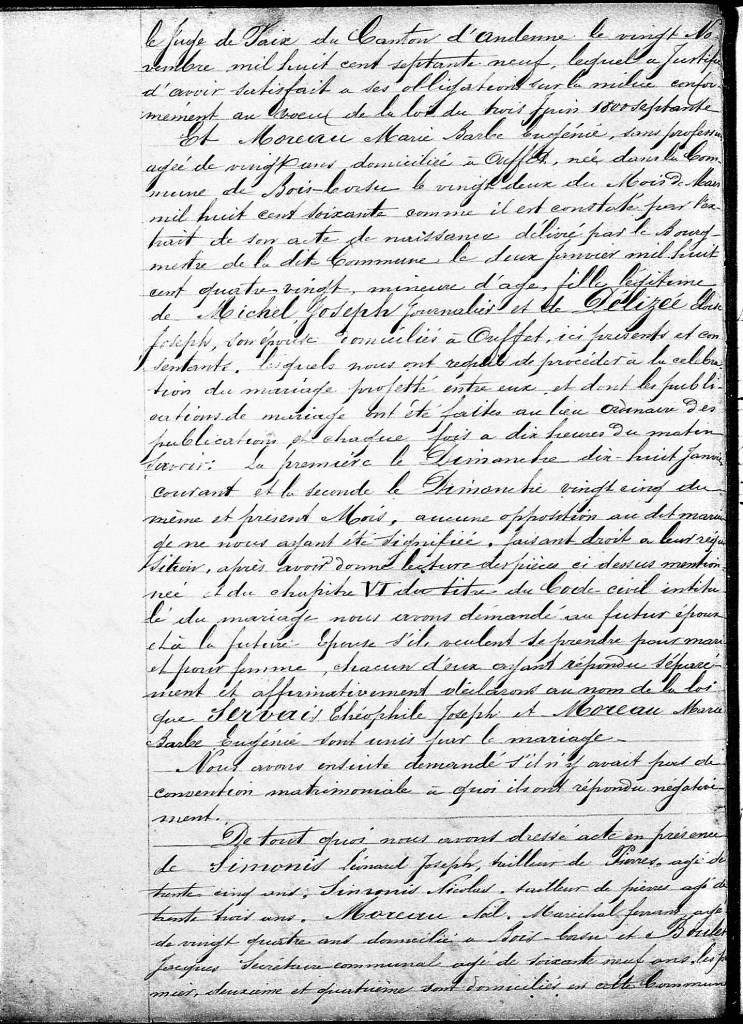 le Juge de Paix du Canton d'andenne le vingt No-
vembre mil huit cent septante neuf, lequel a Justifié
d'avoir satisfait a ses obligations sur la milice confor-
mément au vœu de la loi du trois Juin 1800 septante
Et Moreau Marie Barbe Eugénie, sans profession
agée de vingt ans domiciliée à Ouffet, née dans la Com-
mune de Bois-borsu le vingt deux du Mois de Mars
mil huit cent soixante comme il est constaté par l'ex-
trait de son acte de naissance délivré par le Bourg-
mestre de la dite Commune le deux Janvier mil huit
cent quatre-vingt, mineure d'age, fille légitime
de Michel, Joseph Journalier et de Délizée
Joseph, son épouse domiciliés à Ouffet, ici présents et con-
sentants. lesquels nous ont requis de procéder à la célébra-
tion du mariage projetté entre eux et dont les publi-
cations de mariage ont été faites au lieu ordinaire des
publications et chaque fois a dix heures du matin
Savoir: La première le Dimanche dix-huit Janvier
courant et la seconde le Dimanche vingt cinq du
même et présent Mois, aucune opposition au dit maria-
ge ne nous ayant été signifiée, faisant droit a leur réqui-
sition, après avoir donné lecture des pièces ci dessus mention-
née et du chapitre VI du titre du Code civil intitu-
lé du mariage nous avons démandé au futur époux
et à la future Epouse s'ils veulent se prendre pour mari
et pour femme, chacun d'eux ayant répondu séparé-
ment et affirmativement déclarons au nom de la loi
que Servais Théophile Joseph et Moreau Marie
Barbe Eugénie sont unis par le mariage
Nous avons ensuite demandé s'il n'y avait pas de
convention matrimoniale à quoi ils ont répondu négative-
ment.
De tout quoi nous avons dressé acte en présence
de Simonis Léonard Joseph, tailleur de Pierres, agé de
trente cinq ans; Simonis Nicolas, tailleur de pierres agé de
trente trois ans. Moreau Noël, Maréchal ferrant, agé
de vingt quatre ans domicilié a Bois borsu et a Boulet
Jacques Secrétaire communal agé de soixante neuf ans, les pre-
mier, deuxième et quatrième sont domiciliés en cette Commune